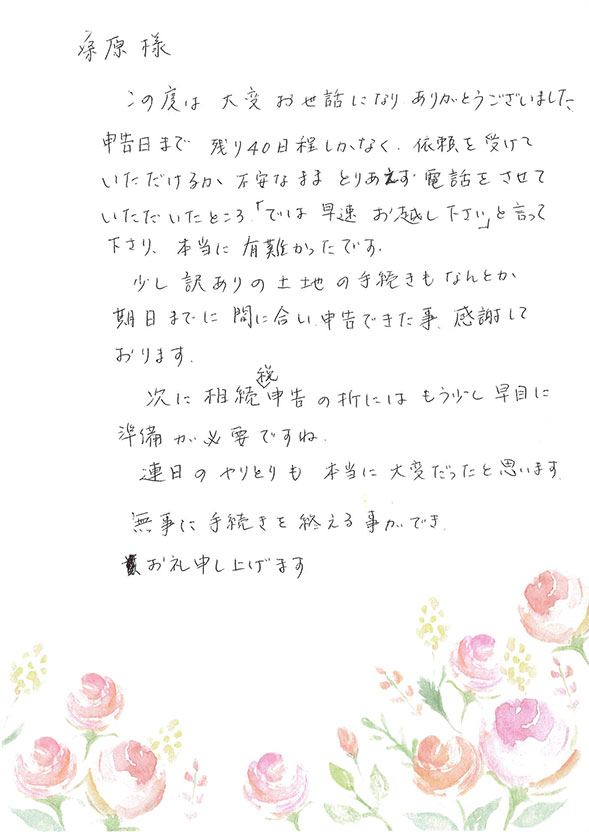 原様
この度は 大変 お世話になり ありがとうございました、
申告日まで 残り40日程しかなく、依頼を受けて
いただけるか 不安なまま とりあえず 電話をさせて
いただいたところ「では 早速 お越し下さい」と言って
下さり、本当に 有難かったです。
少し 訳ありの土地の手続きもなんとか
期日までに 間に合い、申告できた事、感謝して
おります。
次に 相続税申告の折には もう少し 早目に
準備が必要ですね。
連日の やりとりも 本当に 大変だったと思います。
無事に 手続きを 終える事ができ、
お礼申し上げます